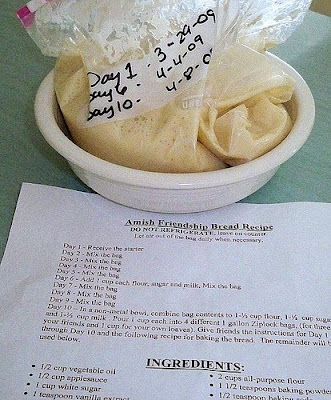 Day 1 - 3-29-09
Day 6 - 4-4-09
Day 10 - 4-8-0
Amish Friendship Bread Recipe
DO NOT REFRIGERATE, leave on counter
Let air out of the bag daily when necessary.
Day 1 - Receive the starter
Day 2 - Mix the bag
Day 3 - Mix the bag
Day 4 - Mix the bag
Day 5 - Mix the bag
Day 6 - Add 1 cup each flour, sugar and milk, Mix the bag
Day 7 - Mix the bag
Day 8 - Mix the bag
Day 9 - Mix the bag
Day 10 - In a non-metal bowl, combine bag contents to 1-½ cup flour, 1-½ cup sugar
and 1-½ cup milk. Pour 1 cup each into 4 different 1 gallon Ziplock bags, (for three
your friends and 1 cup for your own loaves). Give friends the instructions for Day 1
through Day 10 and the following recipe for baking the bread. The remainder will b
used below.
INGREDIENTS:
• 1/2 cup vegetable oil
• 1/2 cup applesauce
• 1 cup white sugar
• 1 teaspoon vanilla extract
• 2 cups all-purpose flour
• 1 ½ teaspoons baking powde
• 1/2 teaspoon baking